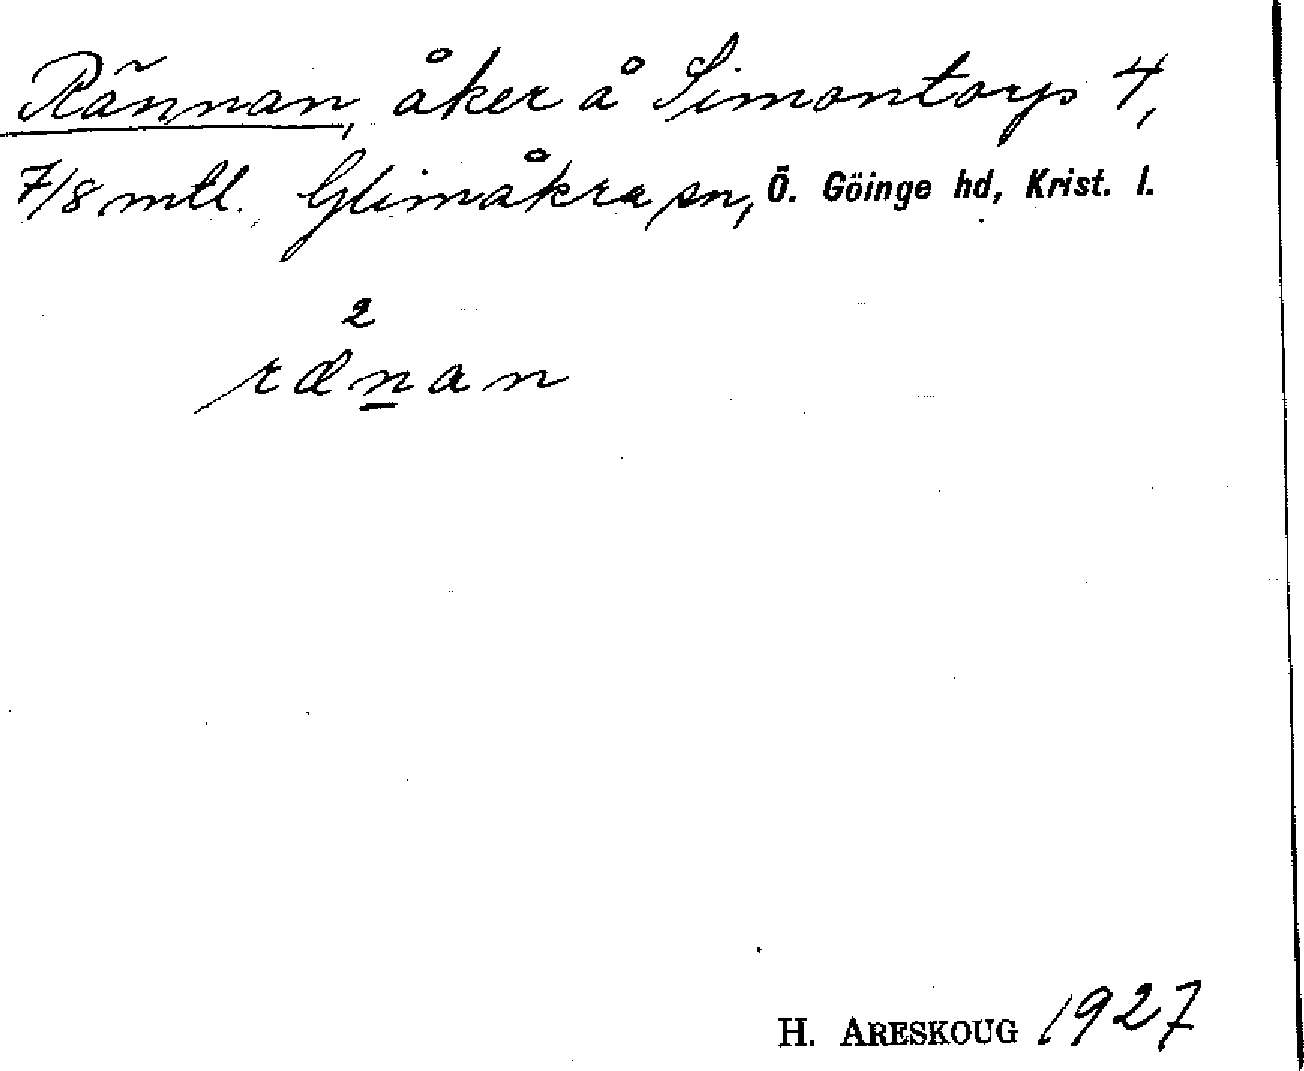 Rännan, åker å Simontorps 4,
7/8 mtl. Glimåkra sn, Ö. Göinge hd, Krist. l.
2
rænan
H. ARESKOUG 1927